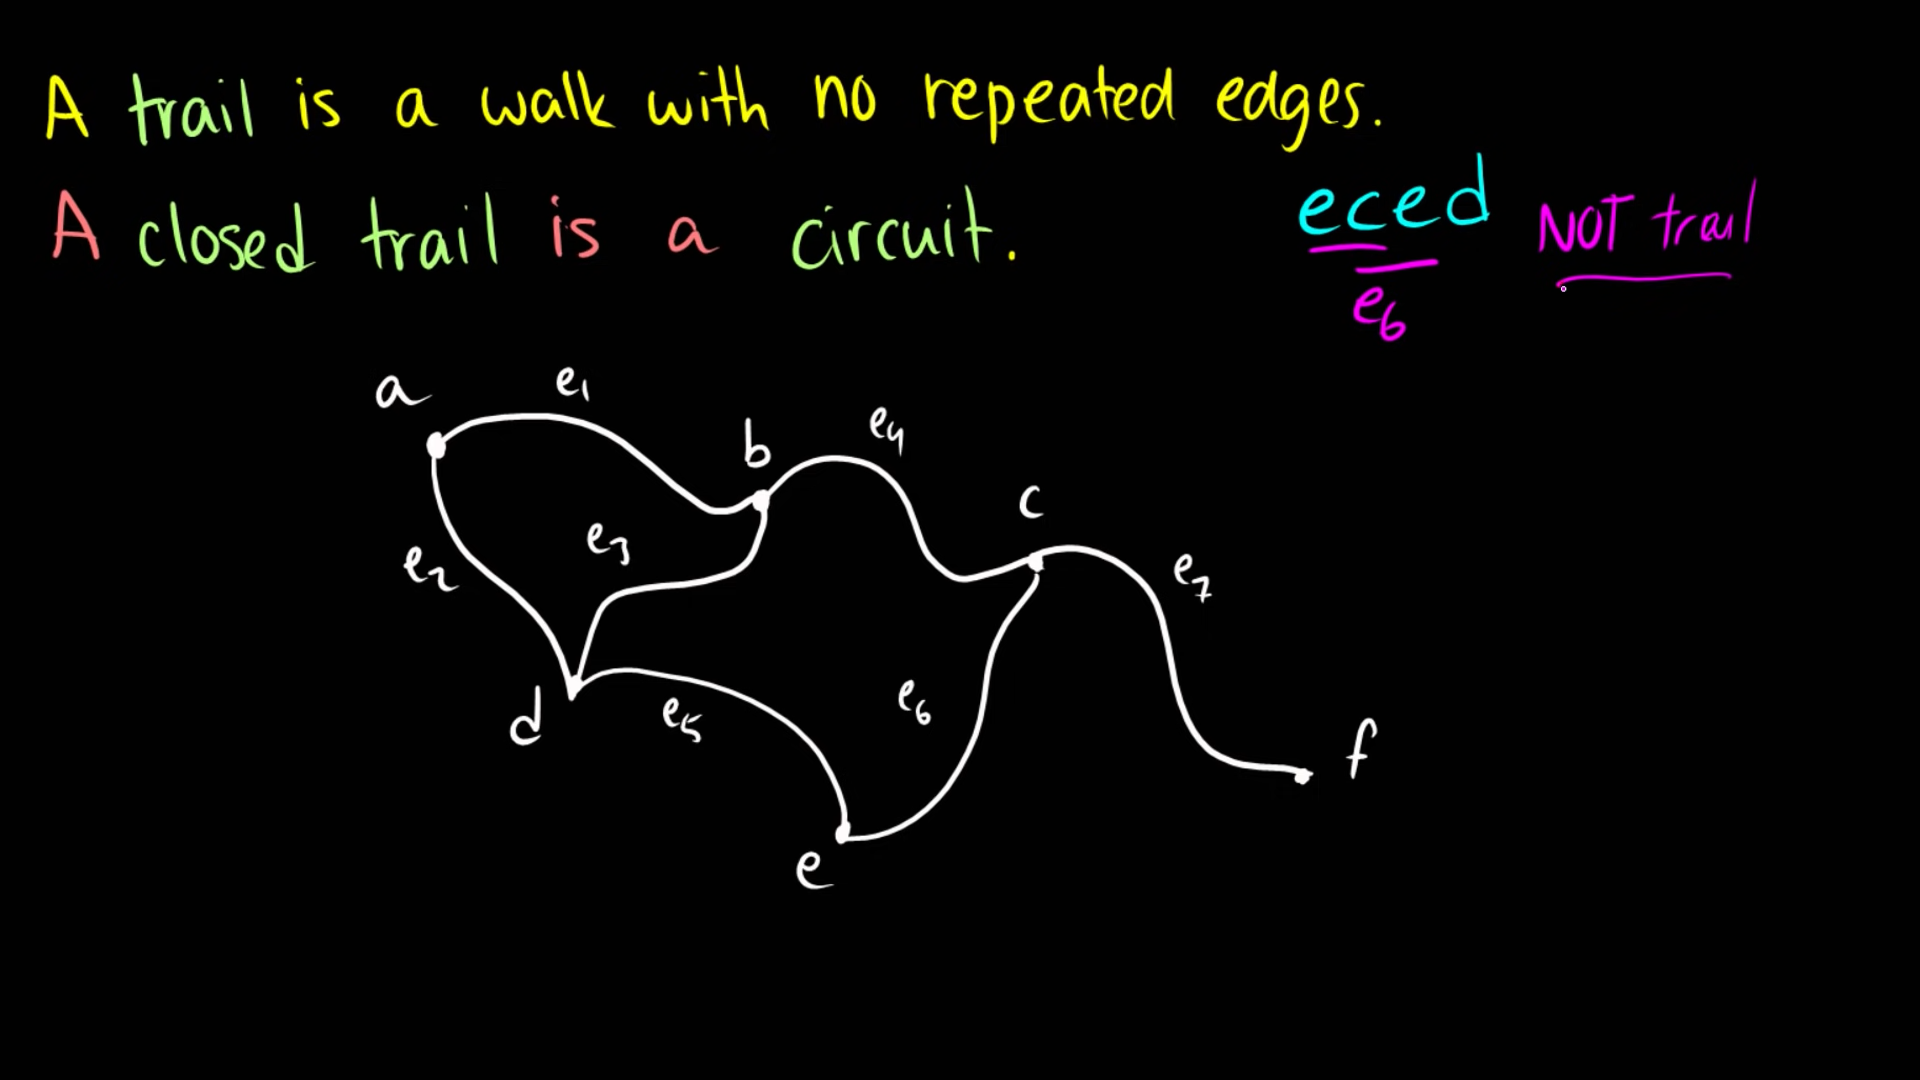 A trail is a walk with no repeated edges.
A closed trail is a circuit.
eced NOT trail
e6
a
e1
b
e4
c
e2
e3
e7
d
e5
e6
f
e